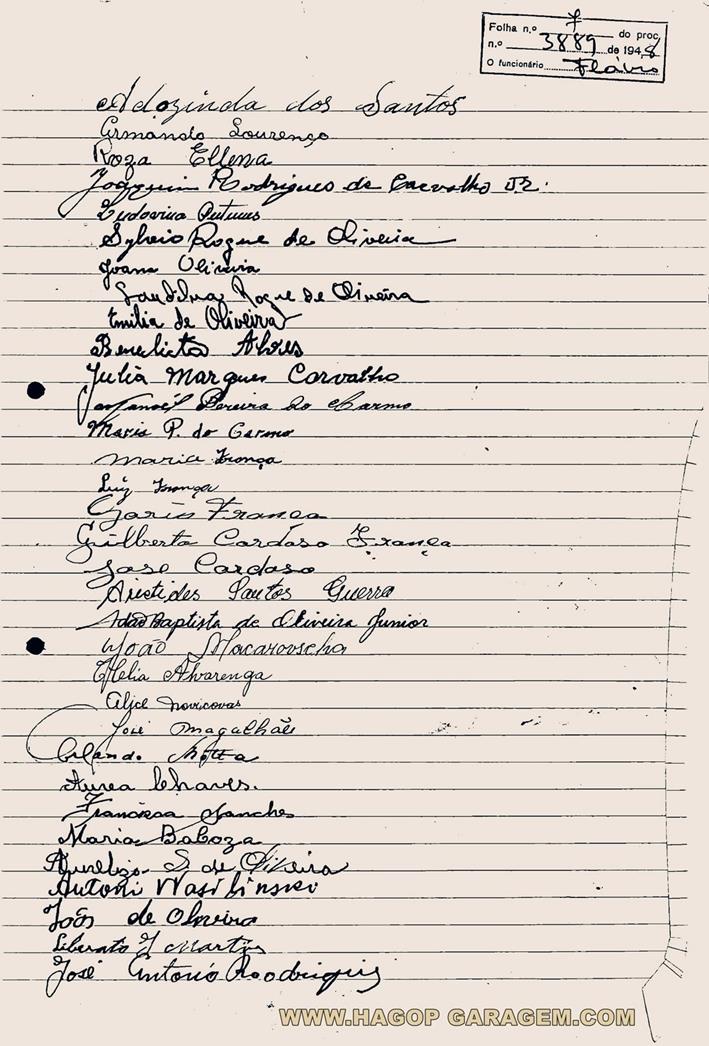 Folha n.º 7 do proc.
n.º 3889 de 1948
O funcionário Flávio
Adozinda dos Santos
Armando Lourenço
Roza Ellena
Joaquim Rodrigues de Carvalho Jr.
Ludovina Antunes
Sylvio Roque de Oliveira
Joana Oliveira
Roque de Oliveira
Emilia de Oliveira
Benedicto Alves
Julia Marques Carvalho
Pereira do Carmo
Maria P. do Carmo
Maria França
Luiz França
França
Gilberta Cardoso França
José Cardoso
Aristides Santos Guerra
João Baptista de Oliveira Junior
João Macarovscha
Ofelia Alvarenga
Alice Novicovas
José Magalhães
Orlando Motta
Aurea Chaves.
Francisca Sanches
Maria Baboza
S. de Oliveira
Antoni Wasilinskei
João de Oliveira
Liberato J Martins
José Antonio Roodrigues
WWW.HAGOP GARAGEM.COM